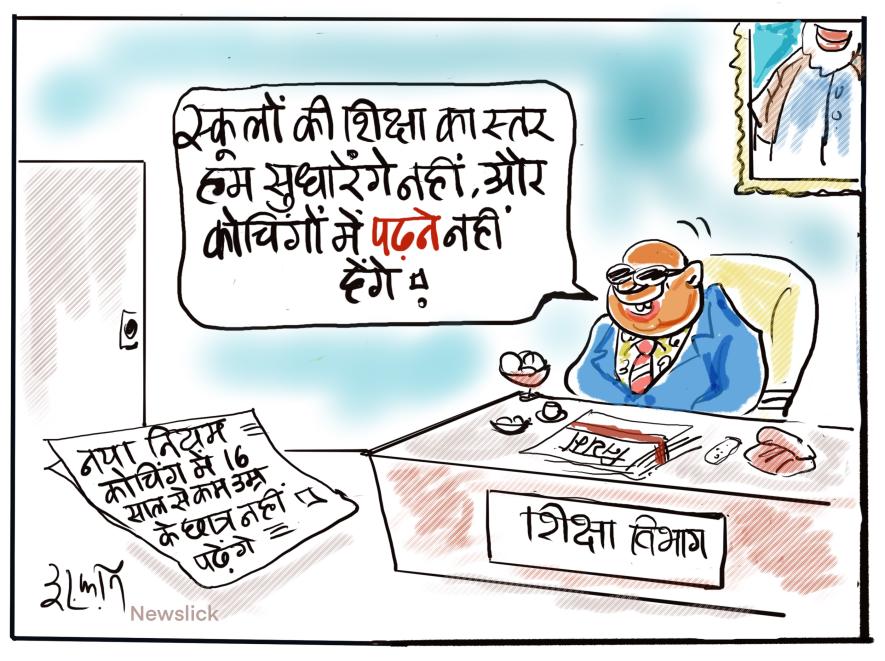 स्कूलों की शिक्षा का स्तर
हम सुधारेंगे नहीं, और
कोचिंगों में पढ़ने नहीं
देंगे !
नया नियम
कोचिंग में 16
साल से कम उम्र
के छात्र नहीं
पढ़ेंगे
शिक्षा विभाग
इरफ़ान
Newslick